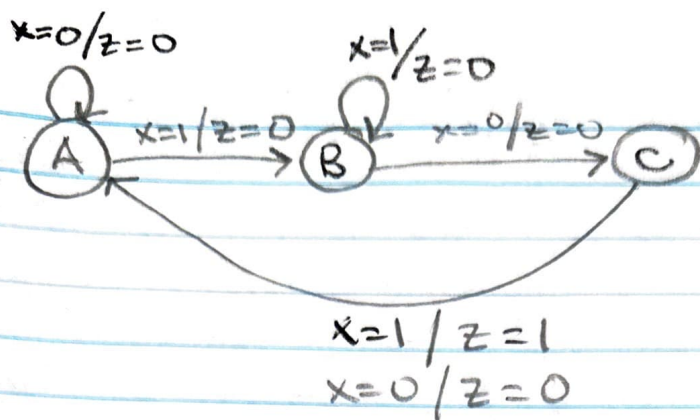 x=0/z=0
x=1/z=0
A
x=1/z=0
B
x=0/z=0
C
x=1/z=1
x=0/z=0